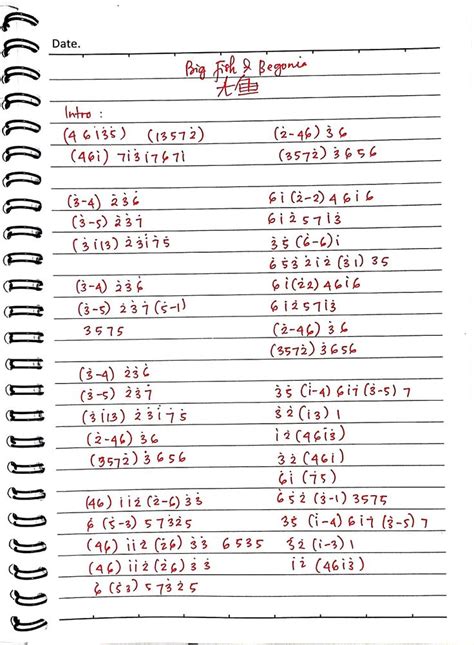 Date.
Big Fish & Begonia
大鱼
Intro :
(4 6 i 3̇ 5̇) (1 3 5 7 2̇) (2̇-4 6) 3̇ 6
(4 6 i) 7 i 3̇ i 7 6 7 i (3 5 7 2̇) 3̇ 6 5 6
(3̇-4) 2̇ 3̇ 6̇ 6 i (2̇-2) 4 6 i 6
(3̇-5) 2̇ 3̇ 7̇ 6 i 2̇ 5 7 i 3̇
(3̇ i 1 3) 2̇ 3̇ i 7̇ 5̇ 3̇ 5̇ (6̇-6) i
6 5̇ 3̇ 2̇ i 2̇ (3̇ 1) 3 5
(3̇-4) 2̇ 3̇ 6̇ 6 i (2̇ 2) 4 6 i 6
(3̇-5) 2̇ 3̇ 7̇ (5̇-1) 6 i 2̇ 5 7 i 3̇
3 5 7 5 (2̇-4 6) 3̇ 6
(3 5 7 2̇) 3̇ 6 5 6
(3̇-4) 2̇ 3̇ 6̇
(3̇-5) 2̇ 3̇ 7̇ 3̇ 5̇ (i-4) 6 i 7̇ (3̇-5) 7
(3̇ i 1 3) 2̇ 3̇ i 7̇ 5̇ 3̇ 2̇ (i 3) 1
(2̇-4 6) 3̇ 6 i 2̇ (4 6 i 3̇)
(3 5 7 2̇) 3̇ 6 5 6 3̇ 2̇ (4 6 i)
6 i (7̇ 5)
(4 6) i i 2̇ (2̇-6) 3̇ 3̇ 6 5̇ 2̇ (3̇-1) 3 5 7 5
6 (5̇-3) 5 7 3̇ 2̇ 5 3̇ 5̇ (i-4) 6 i 7̇ (3̇-5) 7
(4 6) i i 2̇ (2̇ 6) 3̇ 3̇ 6 5 3 5 3̇ 2̇ (i-3) 1
(4 6) i i 2̇ (2̇ 6) 3̇ 3̇ i 2̇ (4 6 i 3̇)
6 (5̇ 3) 5 7 3̇ 2̇ 5